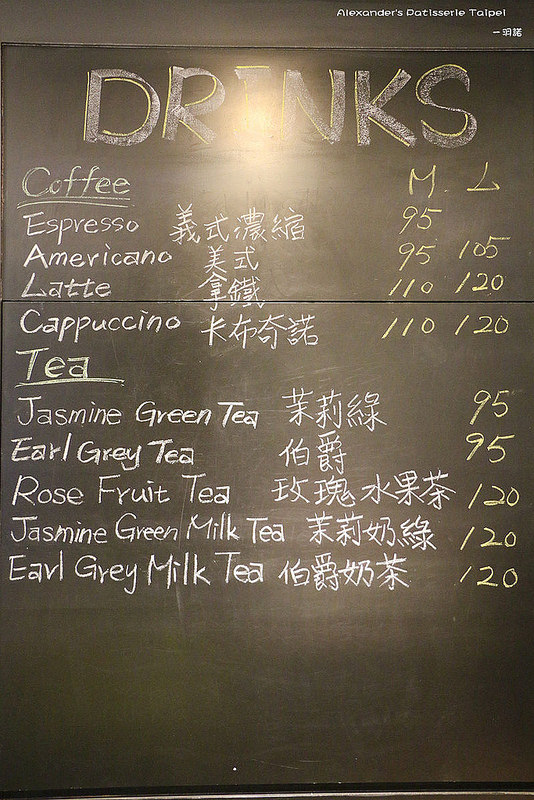 Alexander's Patisserie Taipei
一羽諾
DRINKS
Coffee M. L
Espresso 義式濃縮 95
Americano 美式 95 105
Latte 拿鐵 110 120
Cappuccino 卡布奇諾 110 120
Tea
Jasmine Green Tea 茉莉綠 95
Earl Grey Tea 伯爵 95
Rose Fruit Tea 玫瑰水果茶 120
Jasmine Green Milk Tea 茉莉奶綠 120
Earl Grey Milk Tea 伯爵奶茶 120